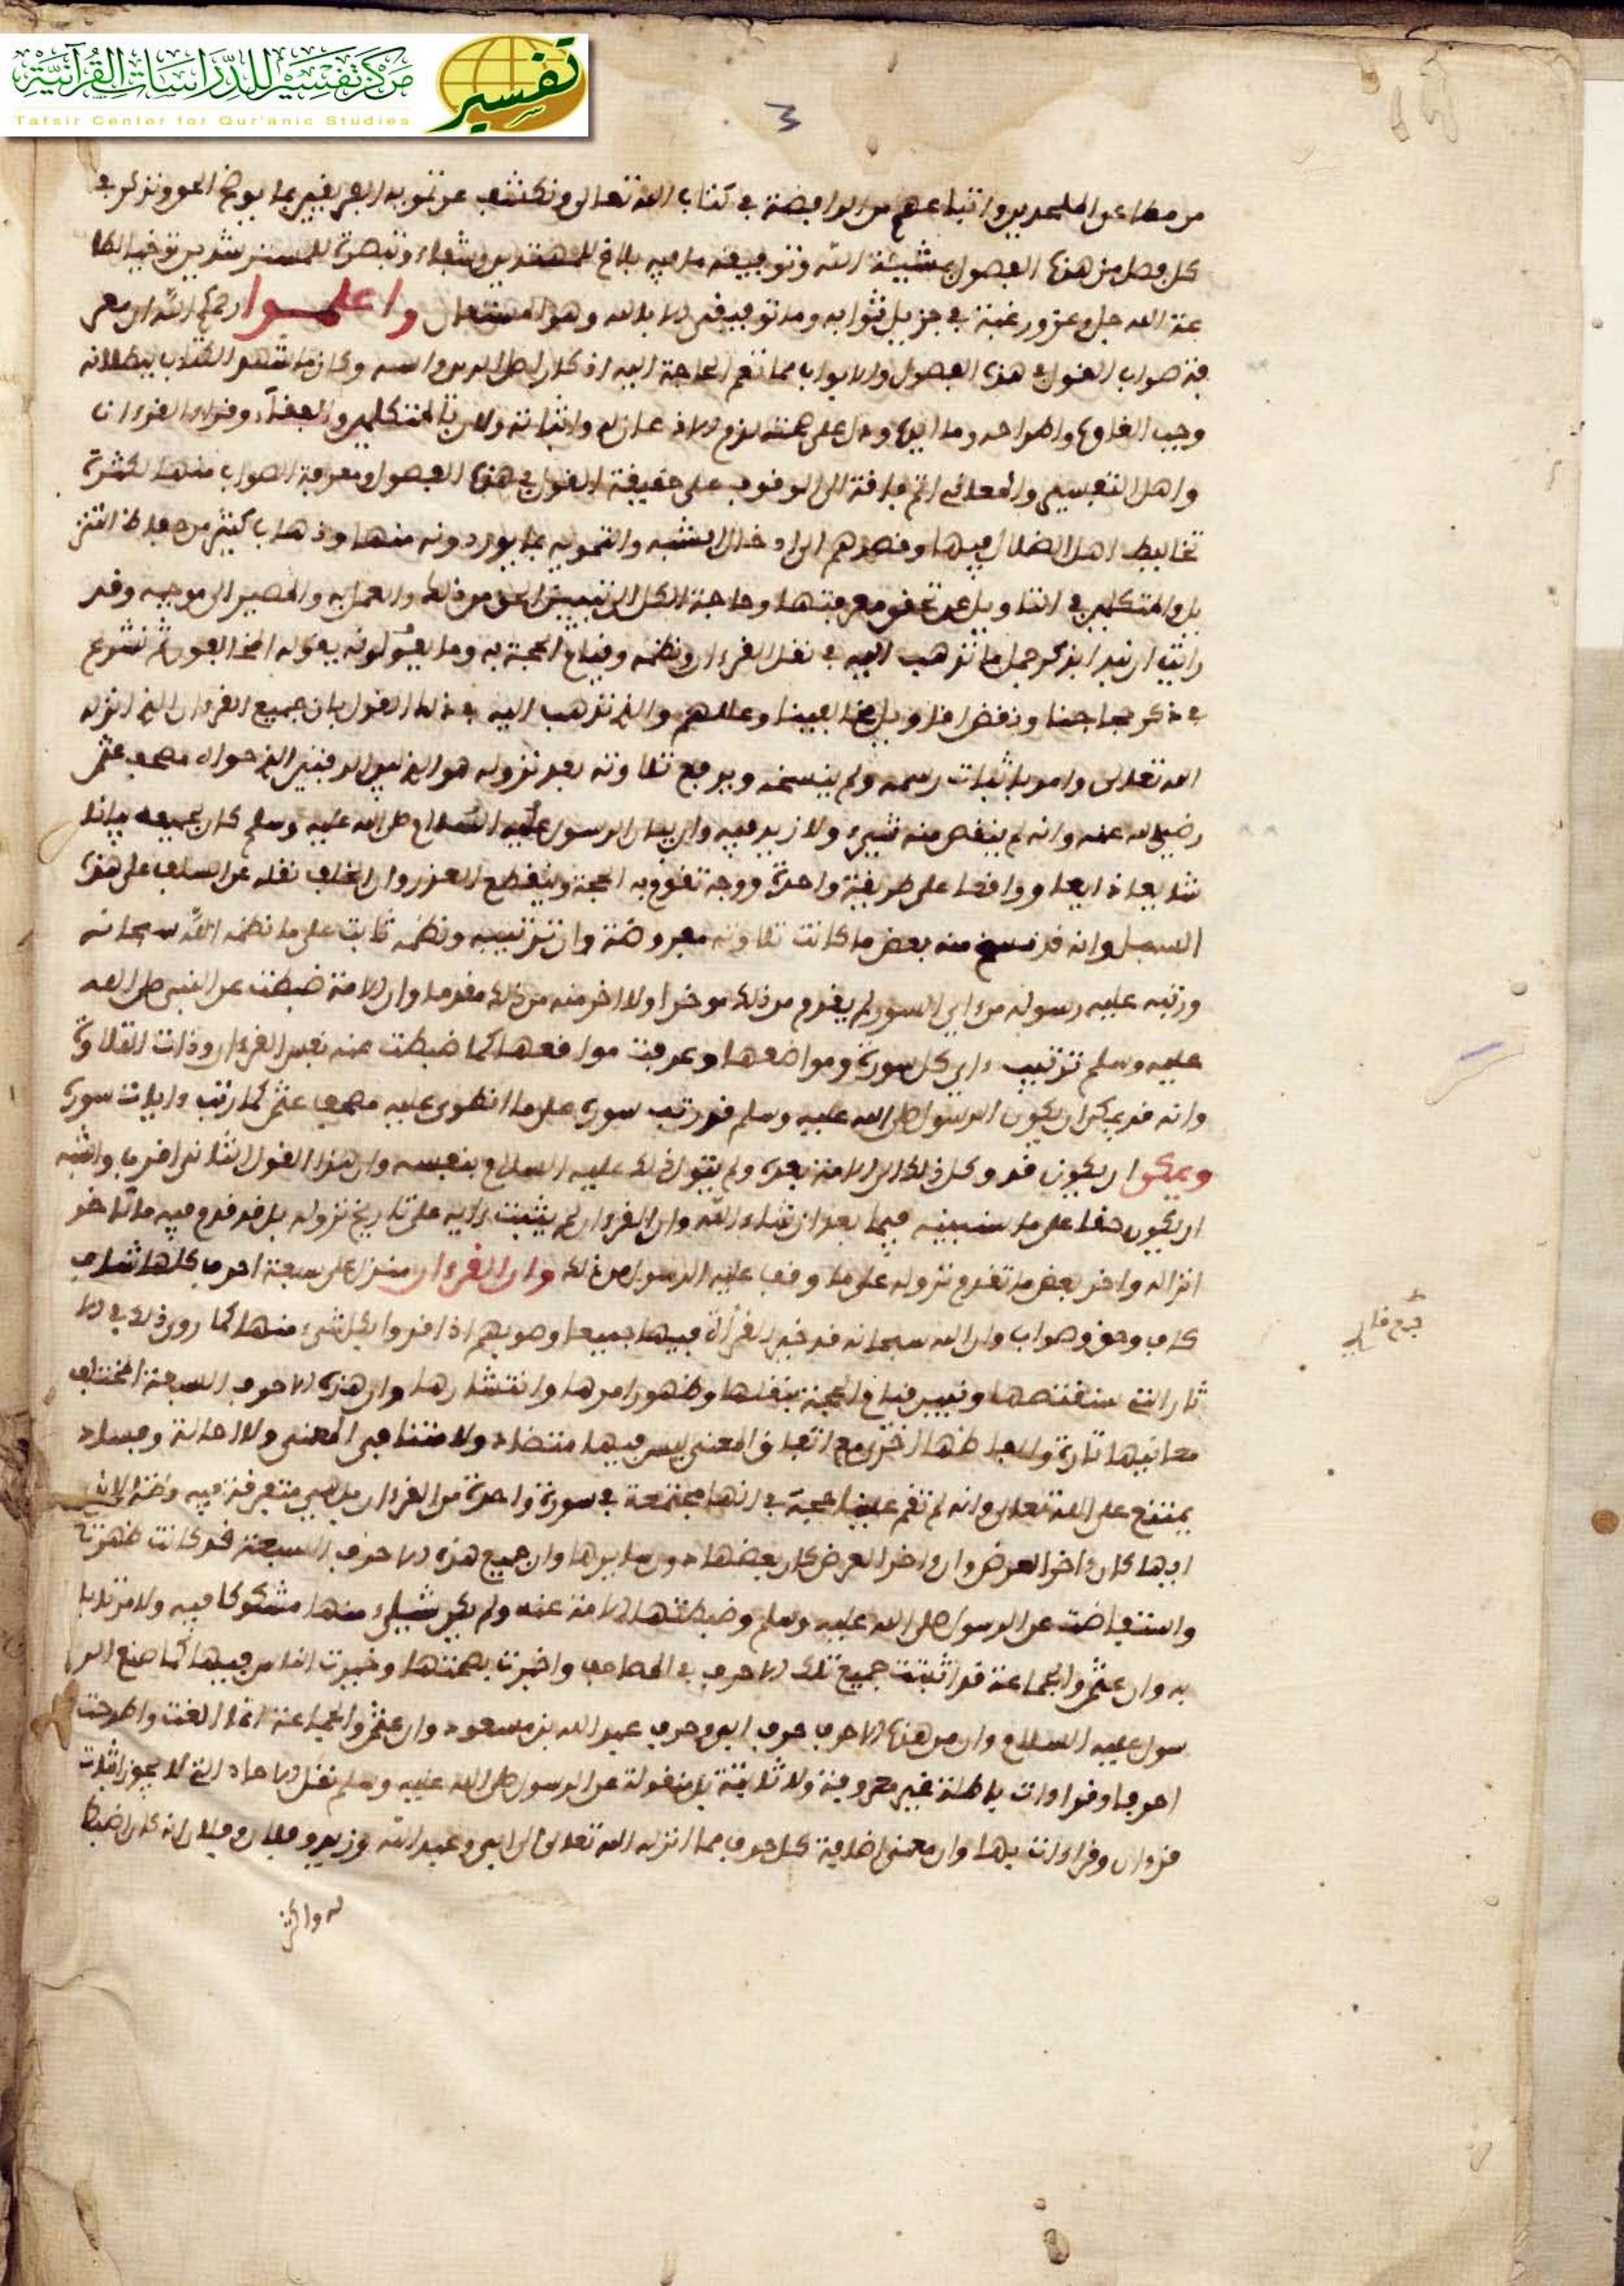 مركز تفسير للدراسات القرآنية
Tafsir Center for Qur'anic Studies
تفسير
3
من مطاعن الملحدين واتباعهم من الرافضة في كتاب الله تعالى ونكشف عن تمويه الفريقين بما يوضح الحق ونذكر في
كل فصل من هذه الفصول بمشيئة الله وتوفيقه ما فيه بلاغ للمهتدين وشفاء وتبصرة للمسترشدين توخيا لطا
عة الله جل وعز ورغبة في جزيل ثوابه وما توفيقي الا بالله وهو المستعان واعلموا رحمكم الله ان معر
فة صواب القول في هذه الفصول والابواب مما تعم الحاجة اليه اذ كان اصل الدين واسه وكان ما شهد الكتاب ببطلانه
وجب القطع واطراحه وما ايده ودل على صحته لزم الاذعان له واثباته ولان بالمتكلمين والفقهاء وقراء القرءان
واهل التفسير والمعاني اتم فاقة الى الوقوف على حقيقة القول في هذه الفصول ومعرفة الصواب منها لكثرة
تخاليط اهل الضلال فيها وقصدهم الى ادخال الشبه والتمويه بما يوردونه منها وذهاب كثير من حفاظ التنز
يل والمتكلمين في التاويل عن تحقق معرفتها وحاجة الكل الى تبيين الحق من ذلك والعمل به والمصير الى موجبه وقد
راينا ان نبدا بذكر جمل ما نذهب اليه في نقل القرءان ونظمه وقيام الحجة به وما يقولونه يقوله المخالفون ثم نشرع
في ذكر حجاجنا ونقض اقاويل مخالفينا وعللهم والذي نذهب اليه في ذلك القول بان جميع القرءان الذي انزله
الله تعالى وامر باثبات رسمه ولم ينسخه ويرفع تلاوته بعد نزوله هو الذي بين الدفتين الذي حواه مصحف عثمن
رضي الله عنه وانه لم ينقص منه شيء ولا زيد فيه وان بيان الرسول عليه السلام صلى الله عليه وسلم كان بجميعه بيانا
شايعا ذايعا وواقعا على طريقة واحدة ووجه تقوم به الحجة وينقطع العذر وان الخلف نقله عن السلف على هذه
السبيل وانه قد نسخ منه بعض ما كانت تلاوته مفروضة وان ترتيبه ونظمه ثابت على ما نظمه الله سبحانه
ورتبه عليه رسوله من اي السور لم يقدم من ذلك موخرا ولا اخر منه من ذلك مقدما وان الامة ضبطت عن النبي صلى الله
عليه وسلم ترتيب ءاي كل سورة ومواضعها وعرفت مواقعها كما ضبطت عنه نفس القرءان وذات التلاوة
وانه قد يمكن ان يكون الرسول صلى الله عليه وسلم قد رتب سوره على ما انطوى عليه مصحف عثمن كما رتب ءايات سوره
ويمكن ان يكون قد وكل ذلك الى الامة بعده ولم يتول ذلك عليه السلام بنفسه وان هذا القول الثاني اقرب واشبه
ان يكون حقا على ما سنبينه فيما بعد ان شاء الله وان القرءان لم يثبت ءايه على تاريخ نزوله بل قد قدم فيه ما تاخر
انزاله واخر بعض ما تقدم نزوله على ما وقف عليه الرسول من ذلك وان القرءان منزل على سبعة احرف كلها شاف
كاف وحق وصواب وان الله سبحانه قد خير القرأة فيها جميعا وصوبهم اذا قروا بكل شيء منها كما روي ذلك في الا
ثار التي سنقتصها ونبين قيام الحجة بنقلها وظهور امرها وانتشارها وان هذه الاحرف السبعة المختلف
معانيها تارة والفاظها اخرى مع اتفاق المعنى ليس فيها متضاد ولا متنافي المعنى ولا احالة وفساد
يمتنع على الله تعالى وانه لم تقم علينا حجة في انها مجتمعة في سورة واحدة من القرءان بل هي متفرقة فيه وانه لا ندري
ايها كان ءاخر العرض وان ءاخر العرض كان بعضها دون سايرها وان جميع هذه الاحرف السبعة قد كانت ظهرت
واستفاضت عن الرسول صلى الله عليه وسلم وضبطتها الامة عنه ولم يكن شيء منها مشكوكا فيه ولا مرتابا
به وان عثمن والجماعة قد اثبتت جميع تلك الاحرف في المصاحف واخبرت بصحتها وخيرت الناس فيها كما صنع الر
سول عليه السلام وان من هذه الاحرف حرف ابي وحرف عبد الله بن مسعود وان عثمن والجماعة انما الغت واطرحت
احرفا وقراءات باطلة غير معروفة ولا ثابتة بل منقولة عن الرسول صلى الله عليه وسلم نقل الاحاد التي لا يجوز اثبات
قرءان وقراءات بها وان معنى اضافة كل حرف مما انزله الله تعالى الى ابي وعبد الله وزيد وفلان وفلان انه كان اضبط
له واكثر